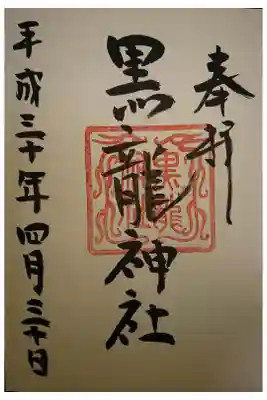 奉拝
黒龍神社
平成三十年四月三十日